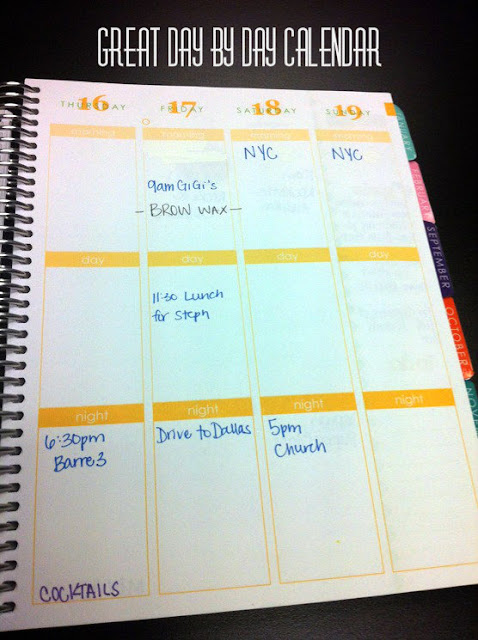 GREAT DAY BY DAY CALENDAR
16 17 18 19
THURSDAY FRIDAY SATURDAY SUNDAY
morning morning morning morning
NYC NYC
9am GiGi's
- BROW WAX -
day day day
11:30 Lunch
for Steph
night night night night
6:30pm Drive to Dallas 5pm
Barre3 Church
COCKTAILS
FEBRUARY
SEPTEMBER
OCTOBER